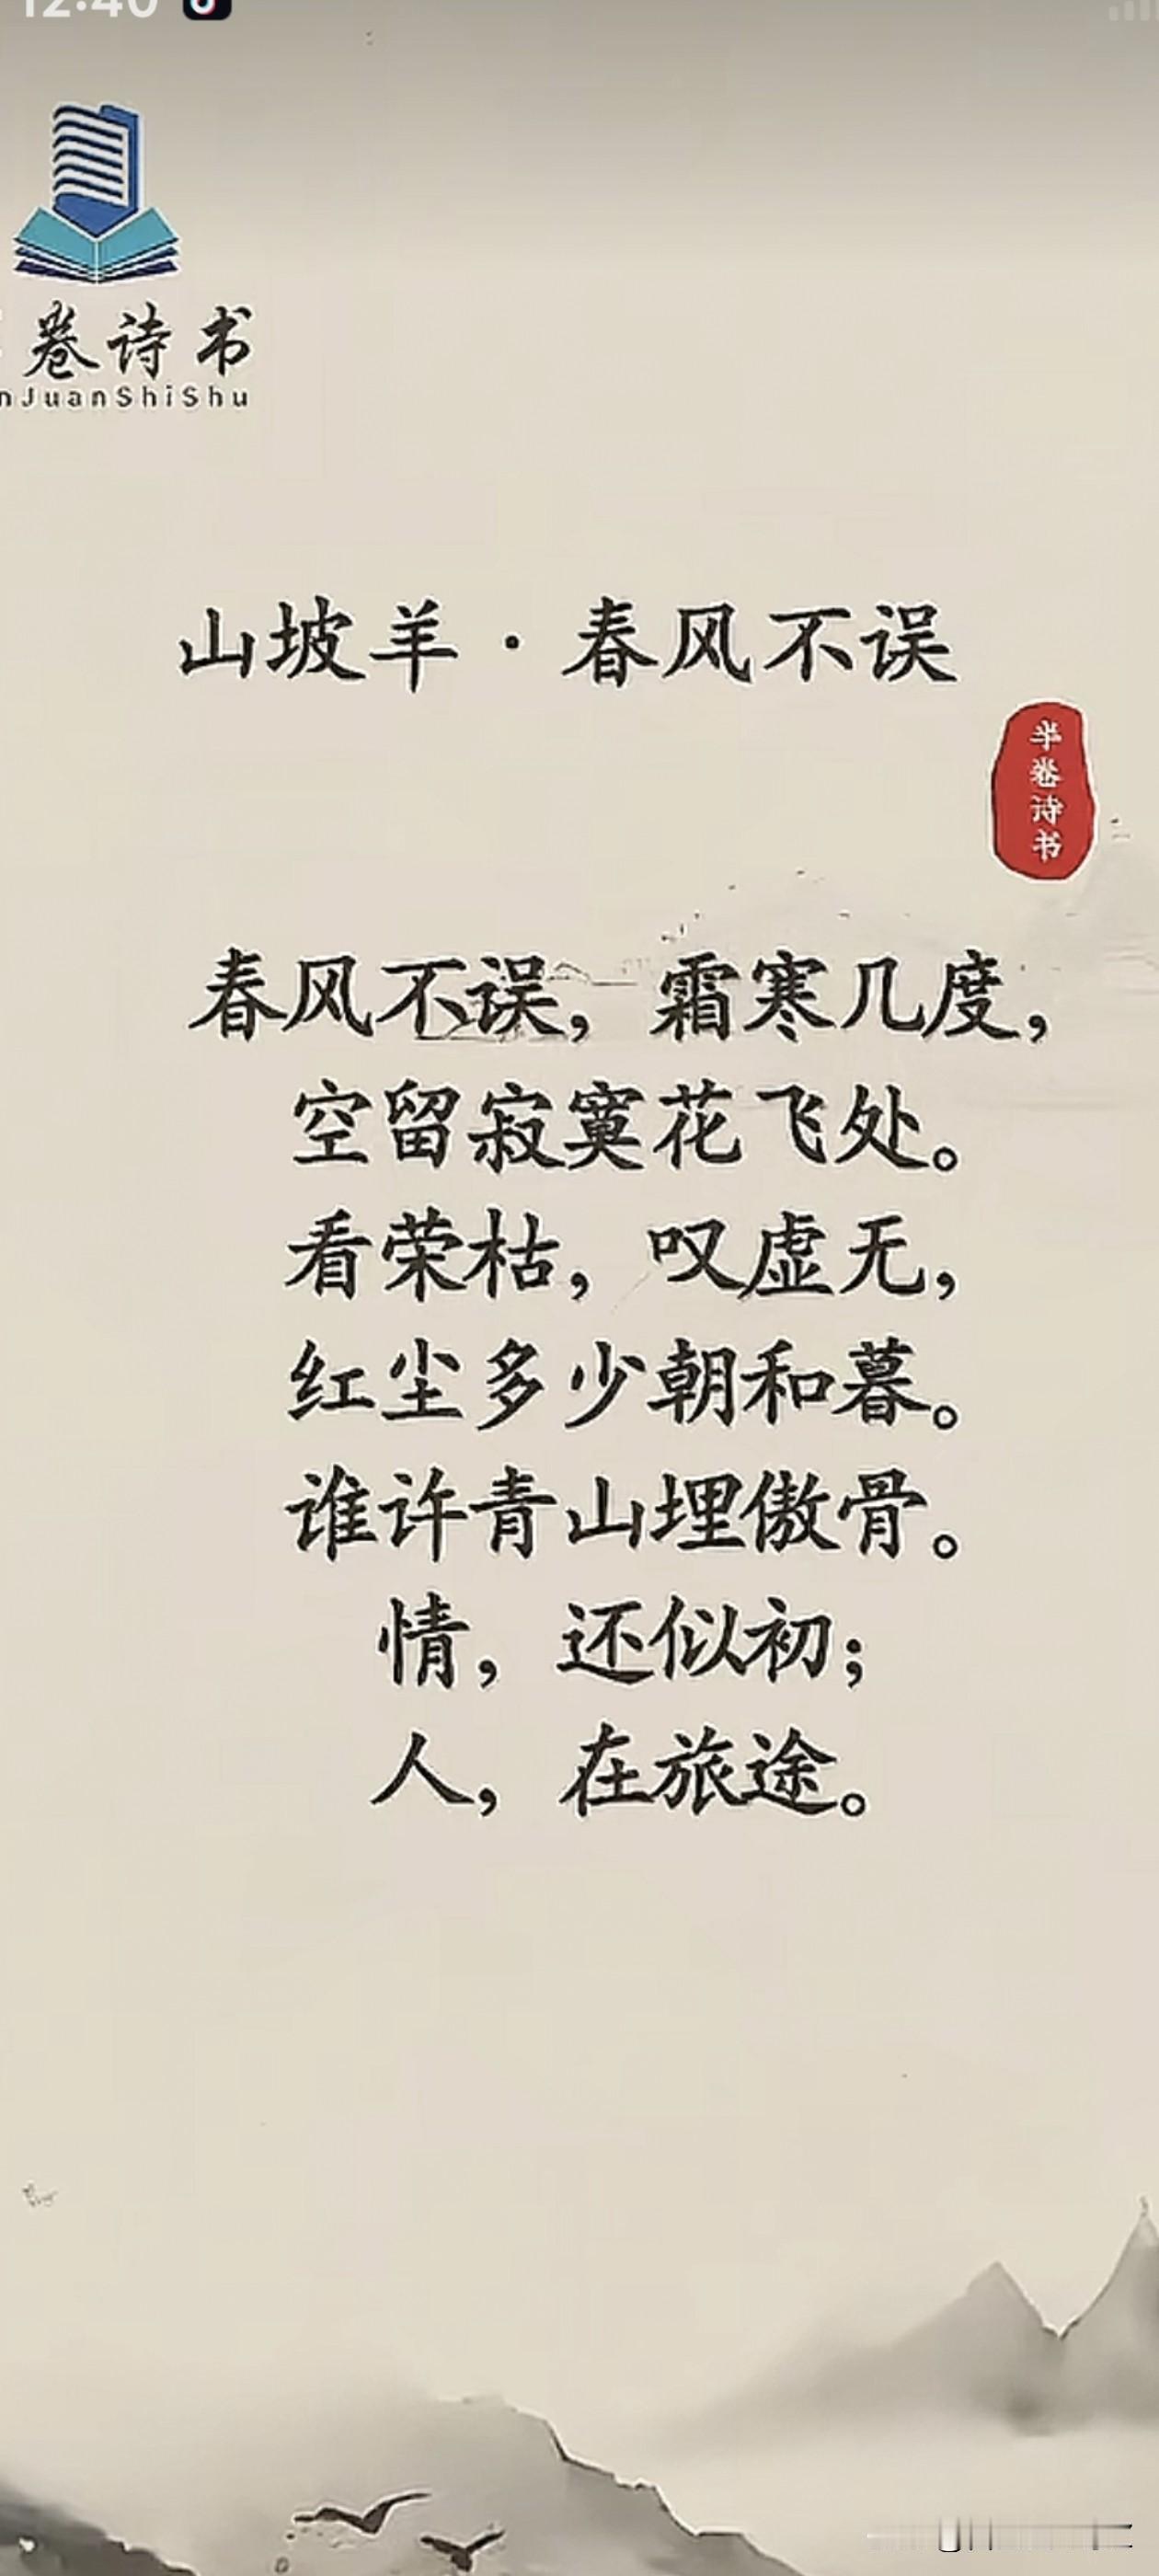 12:40
卷诗书
nJuanShiShu
山坡羊·春风不误
半卷诗书
春风不误，霜寒几度，
空留寂寞花飞处。
看荣枯，叹虚无，
红尘多少朝和暮。
谁许青山埋傲骨。
情，还似初；
人，在旅途。